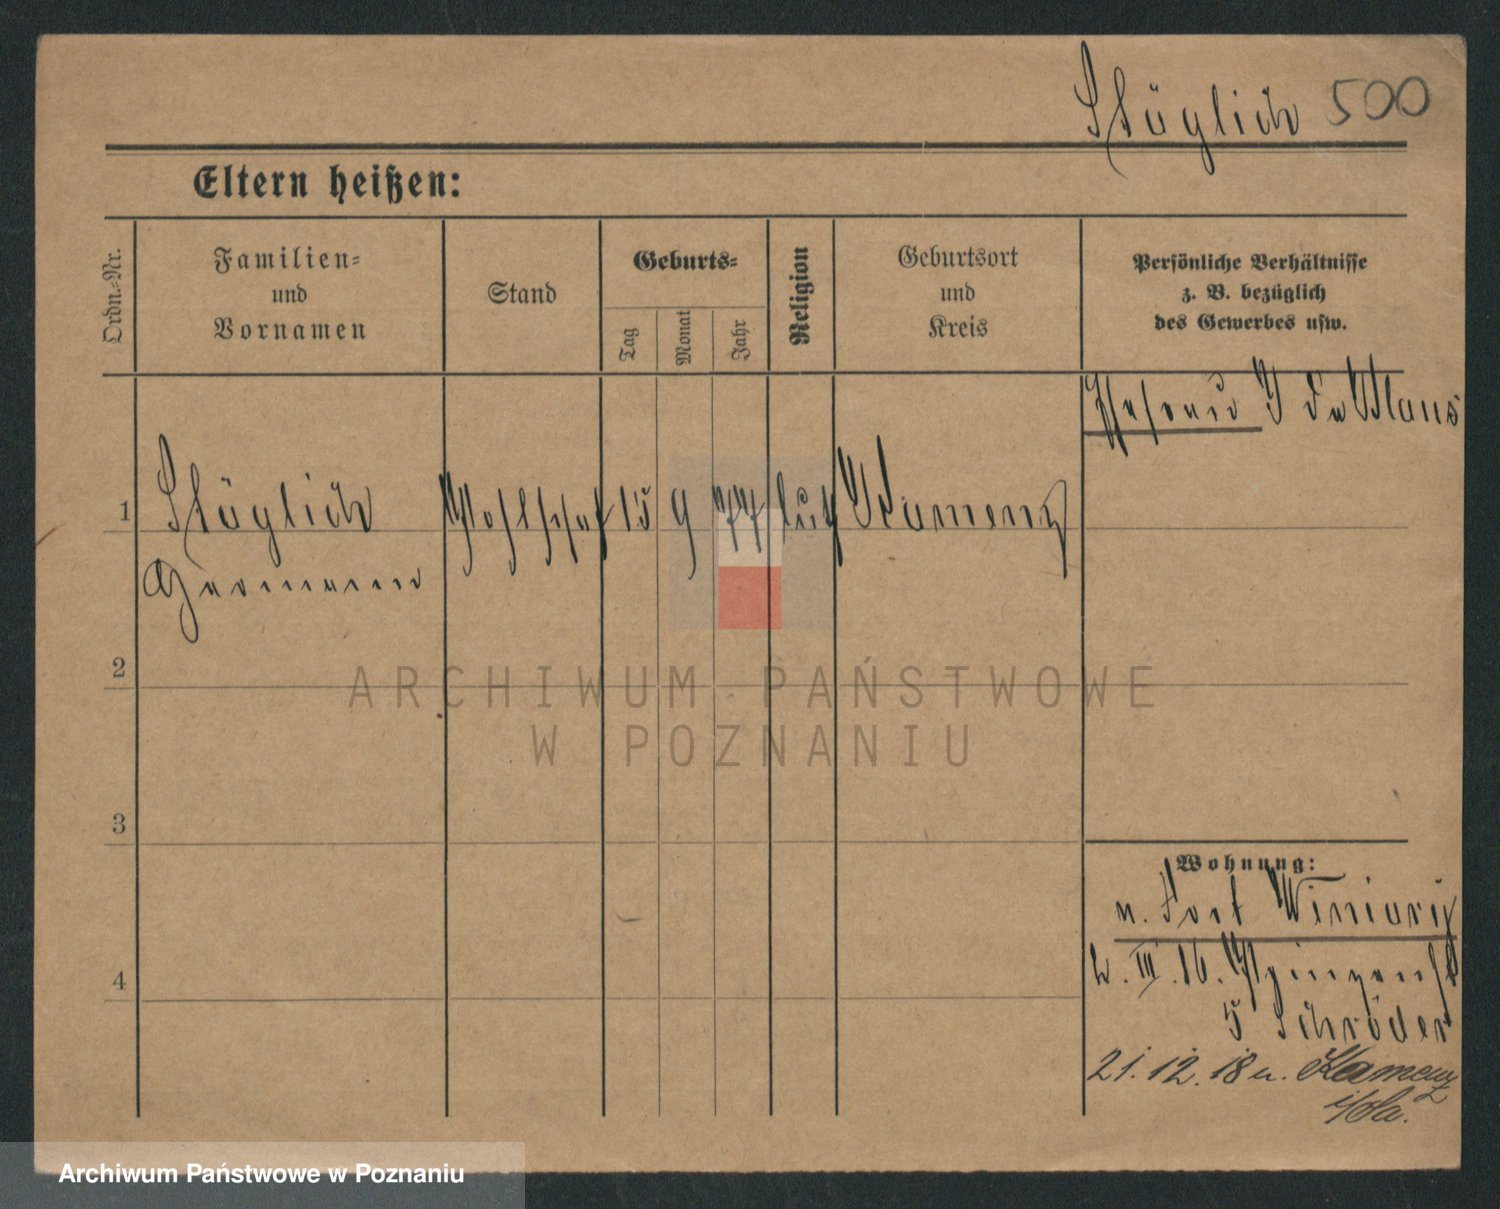 Stüglich 500
Eltern heißen:
Ordn.-Nr.
Familien-
und
Vornamen
Stand
Geburts-
Tag
Monat
Jahr
Religion
Geburtsort
und
Kreis
Persönliche Verhältnisse
z. B. bezüglich
des Gewerbes usw.
1
Stüglich
Hermann
15 9 77 luth Kamenz
2
3
4
Wohnung:
n. Fort Winiary
2. III. 16.
5 Schröder
21.12.18 n. Kamenz
i/Sa.
ARCHIWUM PAŃSTWOWE
W POZNANIU
Archiwum Państwowe w Poznaniu